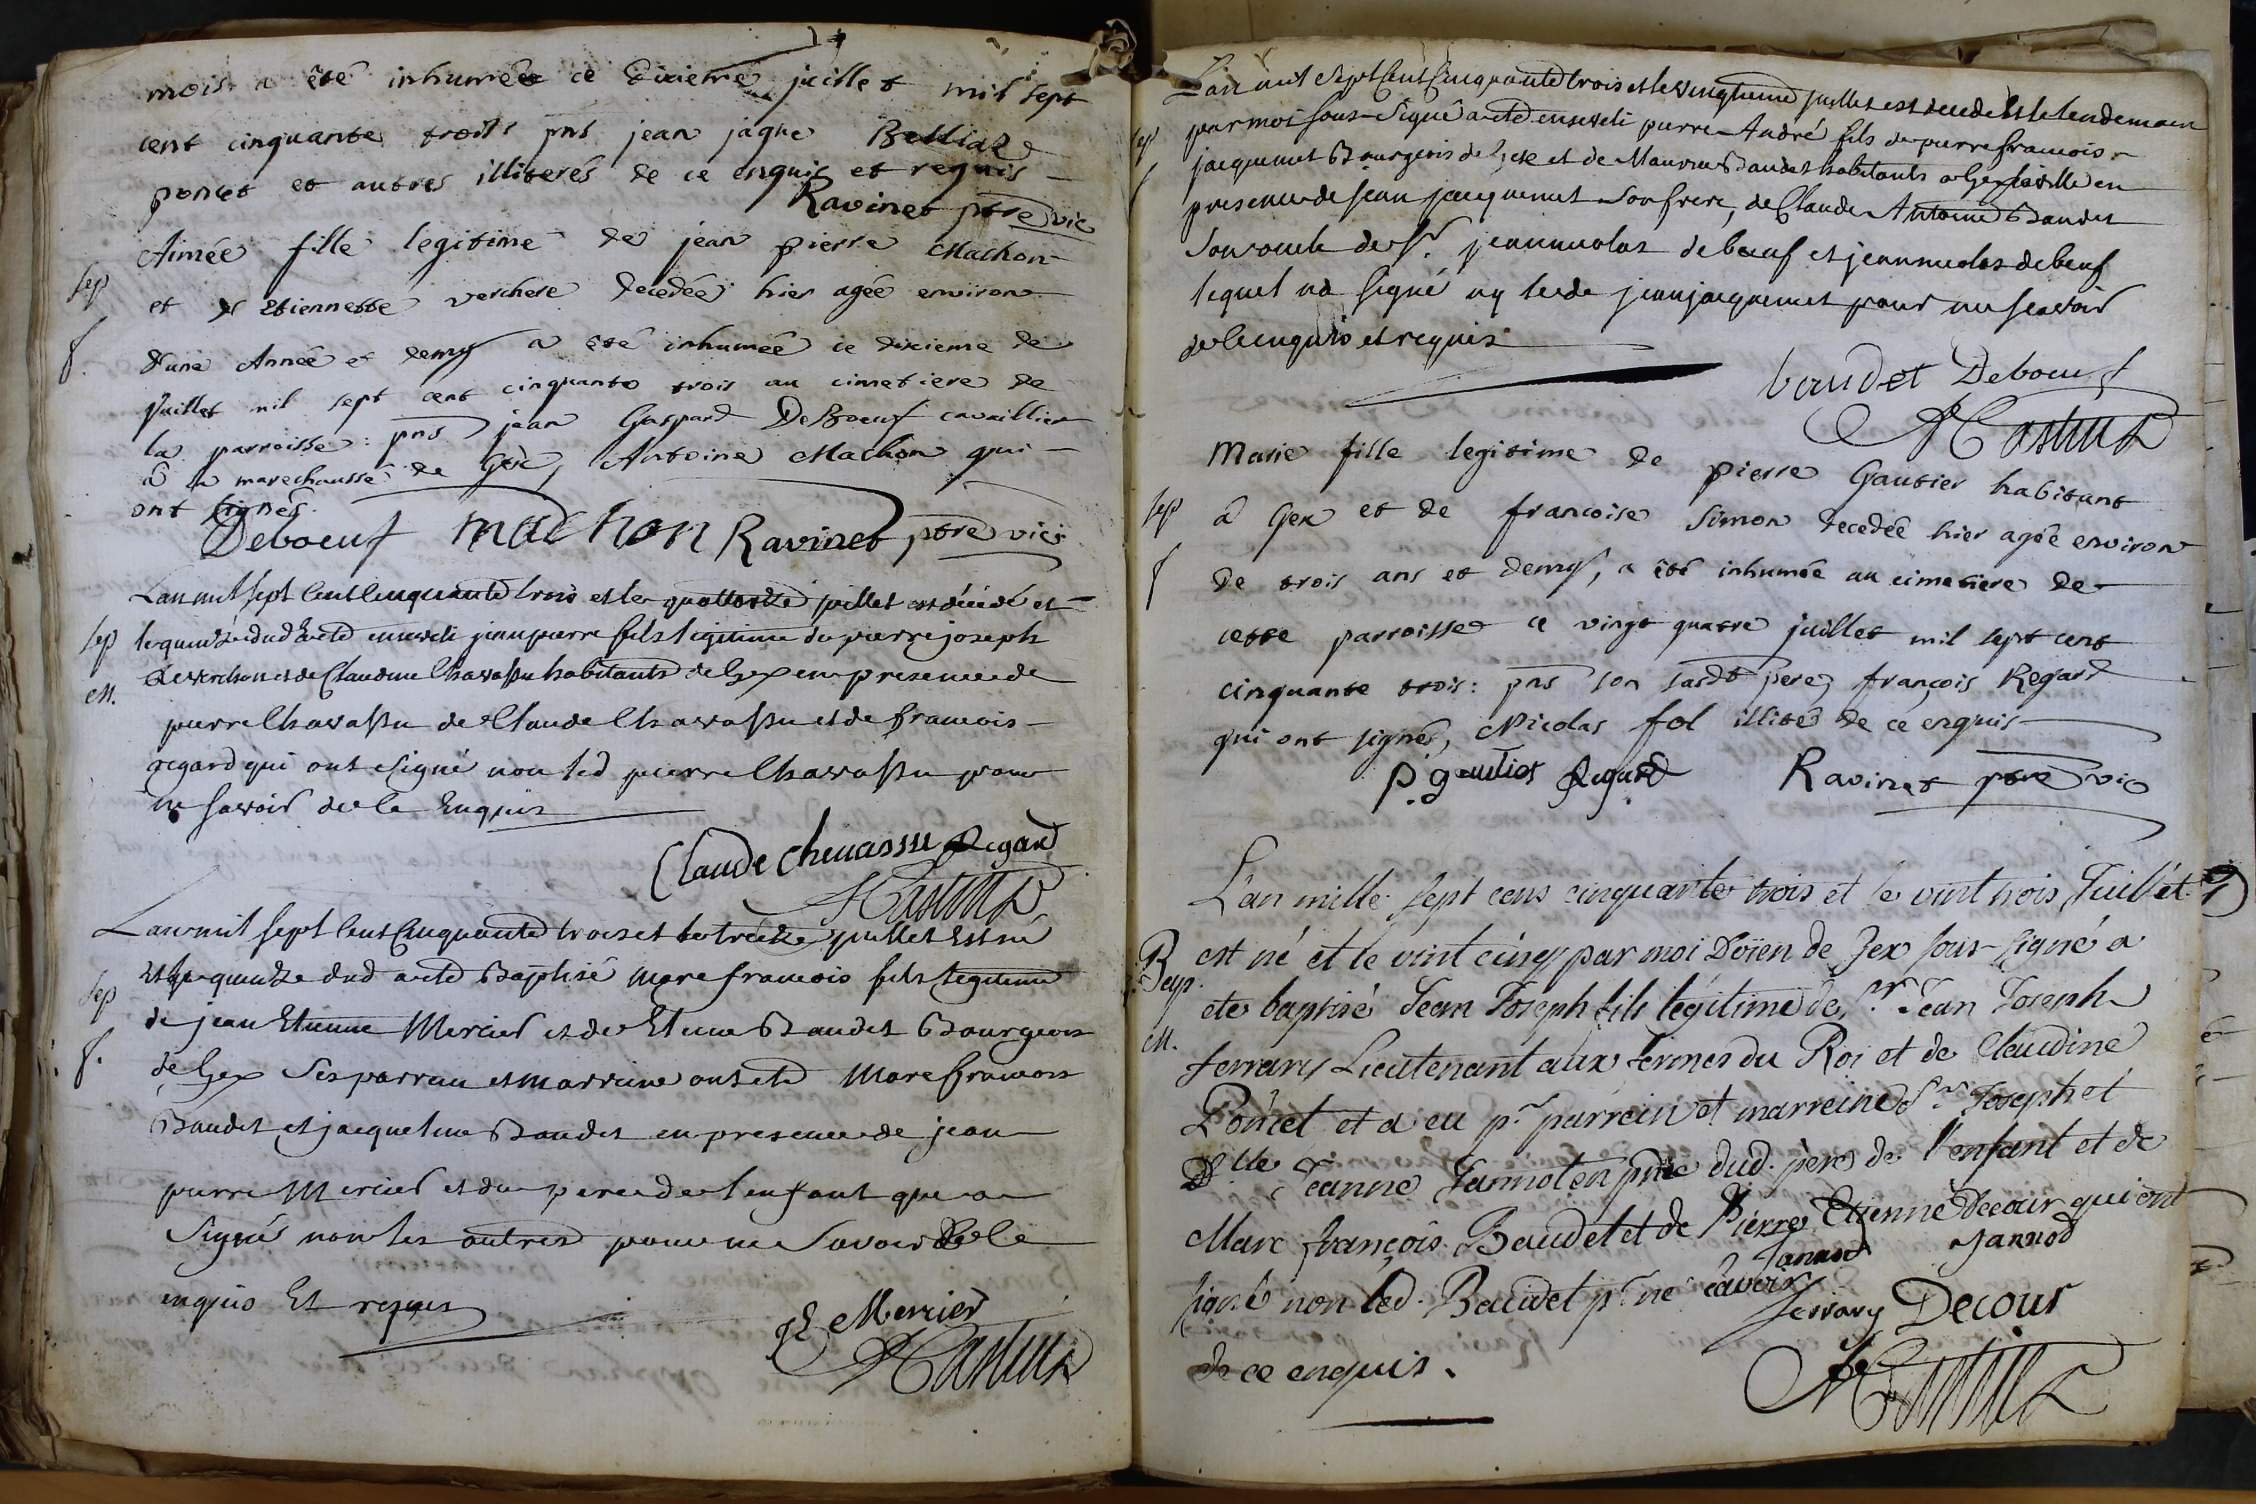 mois a été inhumée ce dixieme juillet mil sept
cent cinquante trois pns jean jaque Belliad
poncet et autres illiterés de ce enquis et requis
Ravinet ptre vic
Aimée fille legitime de jean pierre Machon
sep
et de Etiennette verchere decedée hier agée environ
f.
d'une Année et demy a été inhumée ce dixieme de
juillet mil sept cent cinquante trois au cimetiere de
la parroisse: pns jean Gaspard DeBoeuf cavaillier
à la marechaussé de Gex, Antoine Machon qui
ont signés.
Deboeuf machon Ravinet ptre vic:
Lan mil sept Cent Cinquante trois et le quattorze juillet est décédé et
sep
le quinze dud a eté enseveli jean pierre fils legitime de pierre joseph
M.
de Claudine Chavassu habitants de Gex en presence de
pierre Chavassu de Claude Chavassu et de francois
regard qui ont signé non led pierre Chavassu pour
ne savoir de le Enquis
Claude chevassu Regard
Lan mil sept Cent Cinquante trois et le treize juillet Est né
Et le quinze dud a eté Baptisé Marc francois fils legitime
sep
de jean Etienne Mercier et de Etiene Baudet Bourgeois
f.
de Gex Ses parrain et marraine ont eté Marc francois
Baudet et jacqueline Baudet en presence de jean
pierre Mercier et du pere de l'enfant qui a
Signés non les autres pour ne Savoir de le
enquis Et requis
JE Mercier
Lan mil Sept Cent Cinquante trois et le vingtieme juillet est decedé Et le lendemain
sep
par moi Sous-Signé a eté enseveli pierre André fils de pierre francois
f
jacquemet Bourgeois de Gex et de Baudet habitants a Gex la ville en
presence de jean jacquemet Son frere, de Claude Antoine Baudet
Son oncle de Sr. jean nicolas de boeuf et jean nicolas debeuf
lequel na Signé ny le de jean jacquemet pour ne Scavoir
de le enquis et requis
baudet Deboeuf
Marie fille legitime de pierre Gautier habitant
sep
à Gex et de francoise Simon decedée hier agée environ
f
de trois ans et demy, a été inhumée au cimetiere de
cette parroisse ce vingt quatre juillet mil sept cent
cinquante trois: pns son susdt pere, françois Regard
qui ont signés, Nicolas fol illité de ce enquis
P. gautier Regard Ravinet ptre vic
L'an mille sept cens cinquante trois et le vint trois Juillet
Bap.
est né et le vint cinq par moi Doïen de Gex sous-signé a
M.
ete baptisé Jean Joseph fils légitime de Sr. Jean Joseph
ferrary Lieutenant aux fermes du Roi et de Claudine
Poncet et a eu pr. parrein et marreine Sr. Joseph et
Dlle Jeanne Jannot en pnce dud. père de l'enfant et de
Marc françois Baudet et de Pierre Etienne Decour qui ont
signé non led. Baudet pr. ne
Jannod
Jannod
de ce enquis.
ferrary Decour